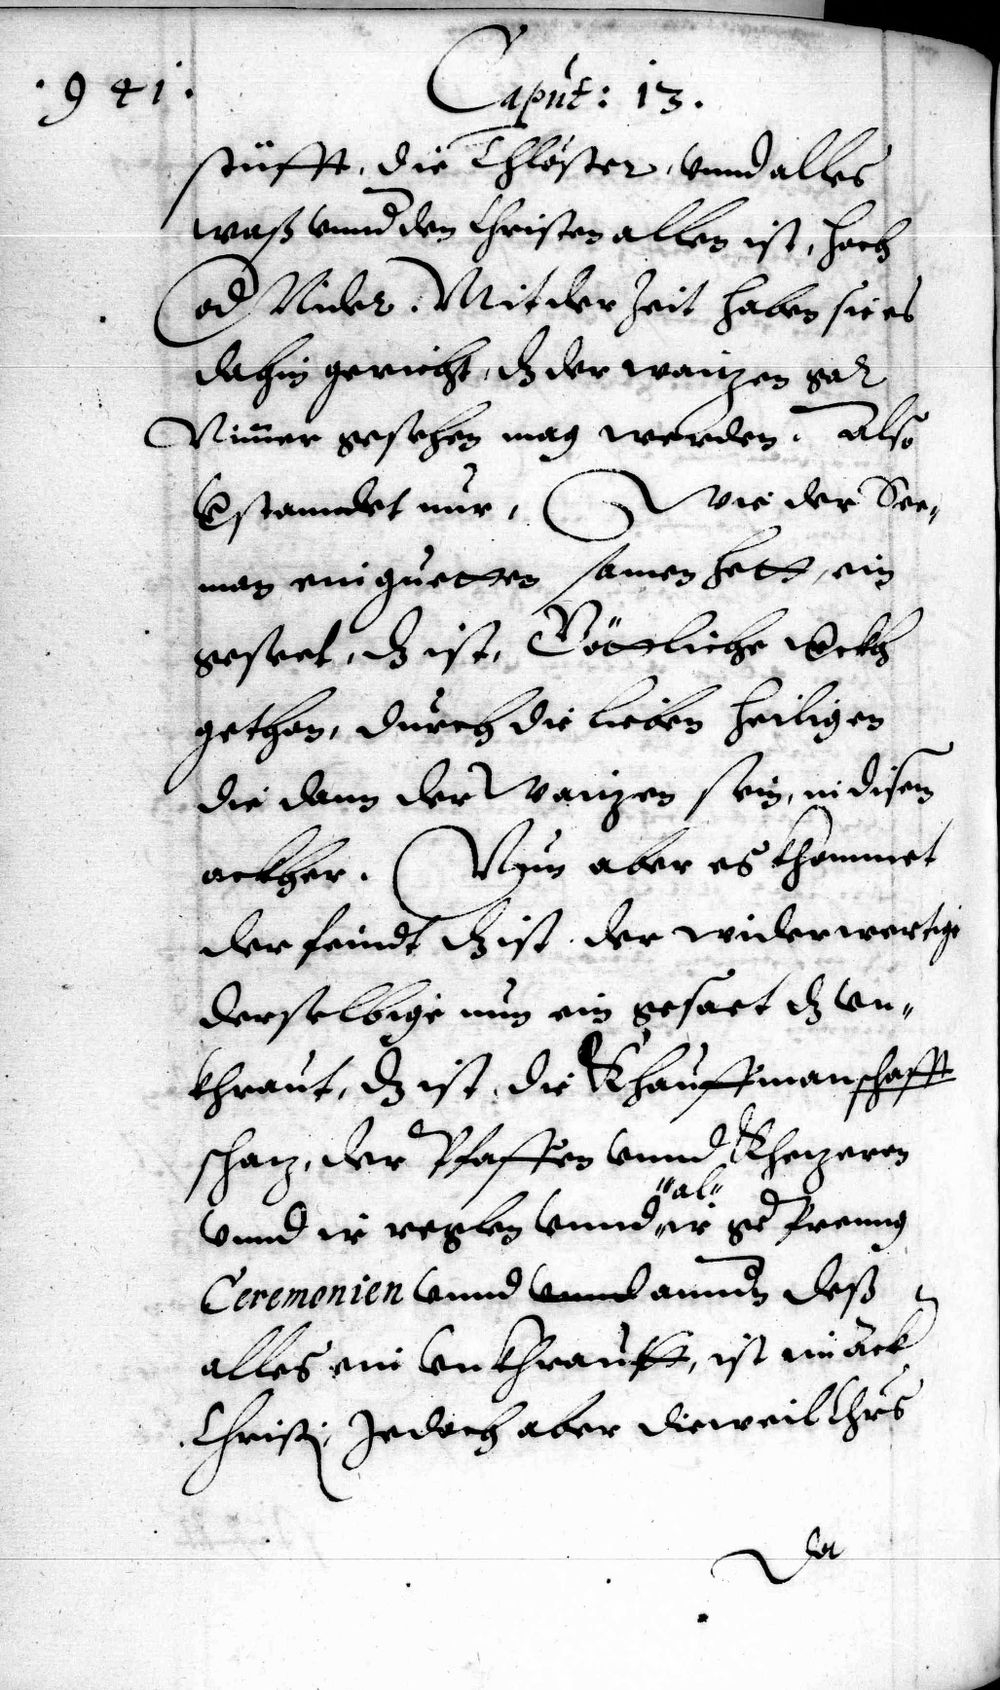 ·941·
Caput: 13.
stüfft, die Chlöster, vnnd alles
waß vnnd den Christen allen ist, hoch
od Nider. Mit der Zeit haben sie es
dahin gericht, dz der waitzen gar
Nim̄er gesehen mag werden. Also
vstanndet nur, Wie der See„
man ein guetten samen hett, ein
geseet, dz ist, Göttliche wckh
gethon, durch die lieben heiligen
die dann der Waitzen sein, in disem
ackher. Nun aber es khommet
der feindt dz ist der widerwertige
derselbige nun ein gesaet dz vn„
khraut, dz ist, die Khauffmanschafft
schatz, der Pfaffen vnnd Khetzeren
vnnd ir reglen vnnd „al„ ir gepreng
Ceremonien vnnd vnnd annders deß
alles ein vnkhrautt, ist im ack
Christi, Jedoch aber dieweil Chrs
Da